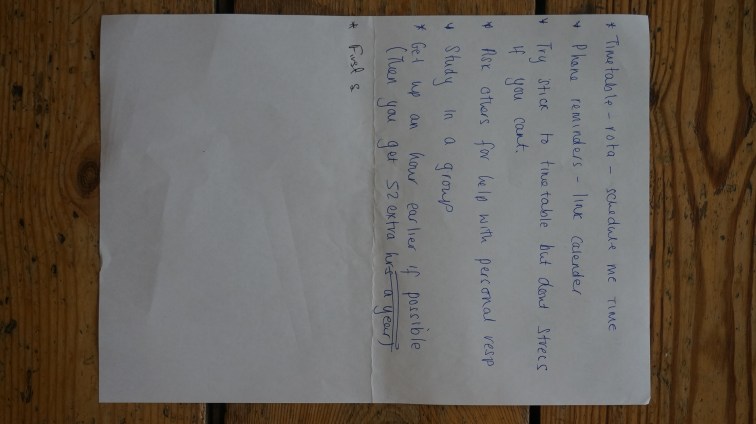 * Timetable - rota - schedule me time
* Phone reminders - link calender
* Try stick to timetable but dont strecs
if you cant.
* Ask others for help with personal resp
* Study in a group
* Get up an hour earlier if possible
(Then you get 52 extra hrs a year)
* First s